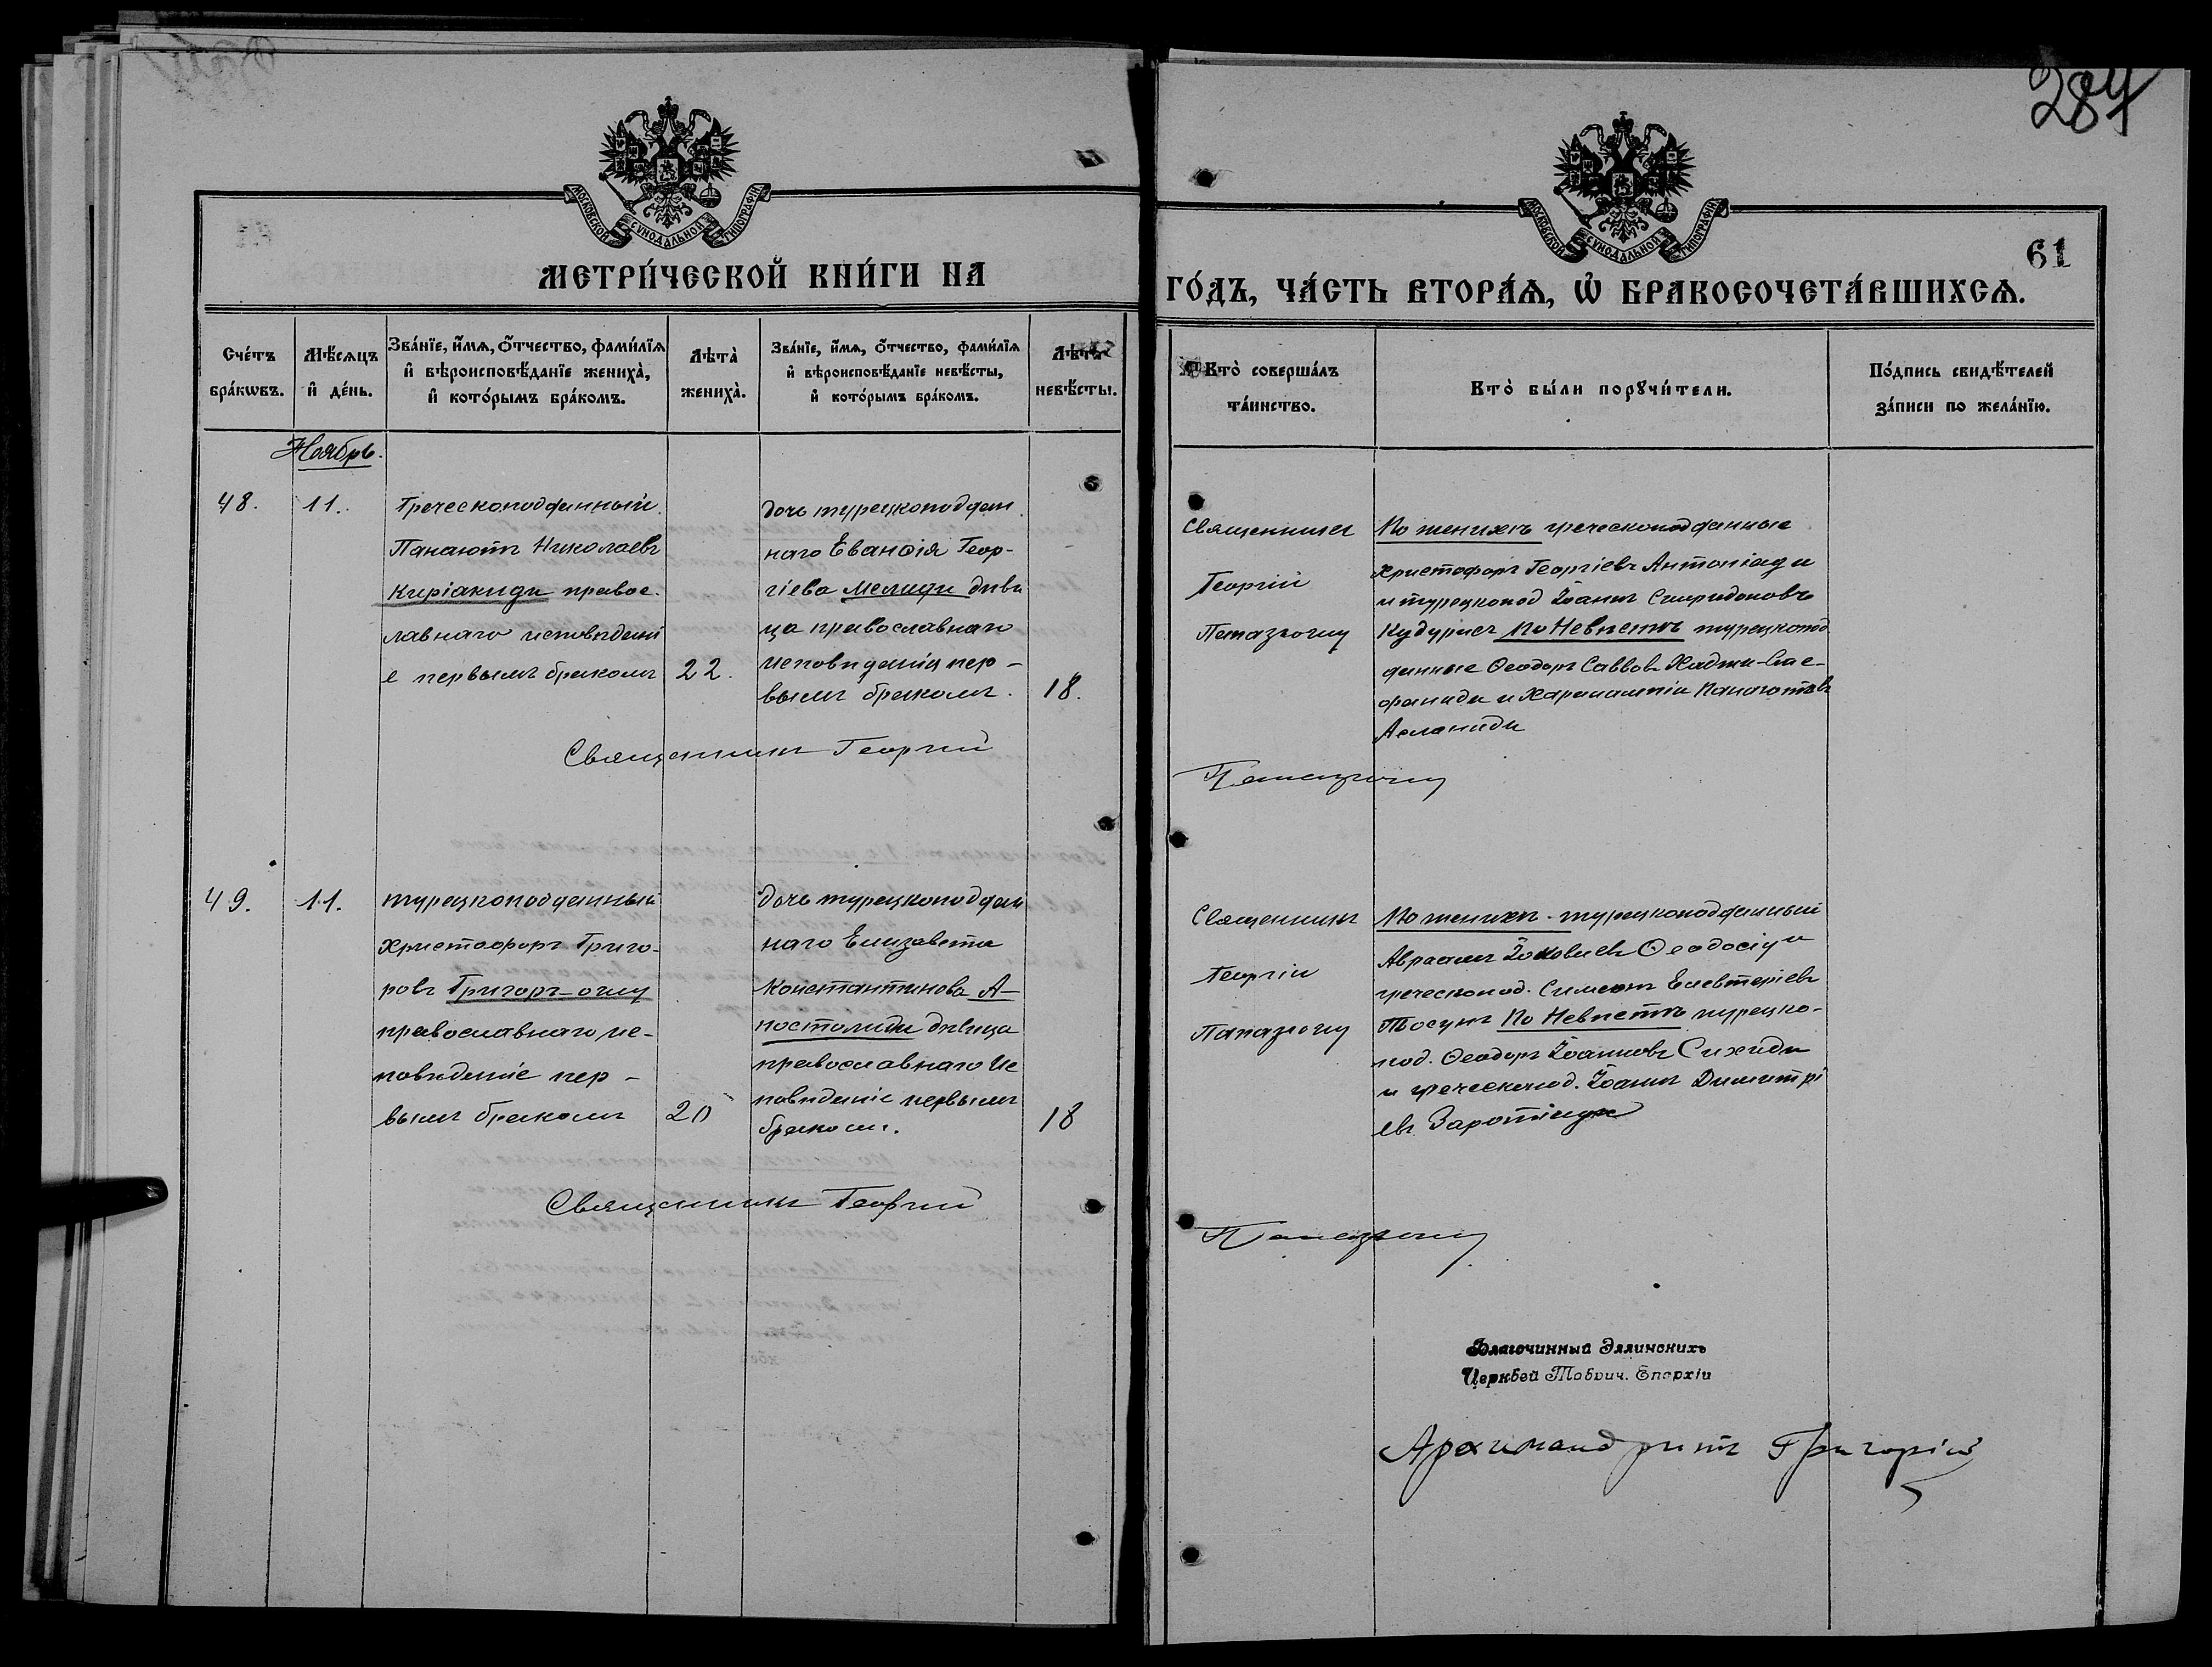 284
МОСКОВСКОЙ СѴНОДАЛЬНОЙ ТИПОГРАФІИ
МОСКОВСКОЙ СѴНОДАЛЬНОЙ ТИПОГРАФІИ
61
МЕТРИ́ЧЕСКОЙ КНИ́ГИ НА
ГО́ДЪ, ЧА́СТЬ ВТОРА́Ѧ, Ѡ҆ БРАКОСОЧЕТА́ВШИХСѦ.
Сче́тъ
бра́кѡвъ.
Мѣ́сѧцъ
и҆ де́нь.
Зва́нїе, и҆́мѧ, о҆́тчество, фами́лїѧ
и҆ вѣроисповѣ́данїе жениха̀,
и҆ кото́рымъ бра́комъ.
Лѣта̀
жениха̀.
Зва́нїе, и҆́мѧ, о҆́тчество, фами́лїѧ
и҆ вѣроисповѣ́данїе невѣ́сты,
и҆ кото́рымъ бра́комъ.
Лѣта̀
невѣ́сты.
Кто̀ соверша́лъ
та́инство.
Кто̀ бы́ли порꙋчи́тели.
По́дпись свидѣ́телей
за́писи по жела́нїю.
Ноябрь.
48.
11.
Греческоподданный
Панаютъ Николаевъ
Киріакиди правос.
лавнаго исповѣдані
е первымъ бракомъ
22.
дочь турецкоподдан
наго Еванѳія Геор-
гіева Мелиди дѣви
ца православнаго
исповѣданія пер-
вымъ бракомъ.
18.
Священникъ
Георгій
Папазоглу
По женихѣ греческоподданные
Христофоръ Георгіевъ Антоніади
и турецкопод Іоаннъ Спиридоновъ
Кудурисъ По Невѣстѣ турецкопод
данные Ѳеодоръ Саввовъ Хаджи-Сте-
фаниди и Харлампій Панаготовъ
Асланиди
Священникъ Георгий
Папазоглу
49.
11.
турецкоподданный
Христофоръ Григо-
ровъ Григоръ-оглу
православнаго ис-
повѣданіе пер-
вымъ бракомъ
20
дочь турецкоподдан
наго Елизавета
Константинова А-
постолиди дѣвица
православнаго Ис
повѣданіе первымъ
бракомъ.
18
Священникъ
Георгій
Папазоглу
По женихѣ - турецкоподданный
Авраамъ Ѳеодосіди
греческопод. Симеонъ Елевтеріевъ
Тосунъ По Невѣстѣ турецко-
под. Ѳеодоръ Іоанновъ Сихиди
и греческопод. Іоаннъ Димитрі
евъ
Священникъ Георгий
Папазоглу
Благочинный Эллинскихъ
Церквей Таврич. Епархіи
Архимандритъ Григорій